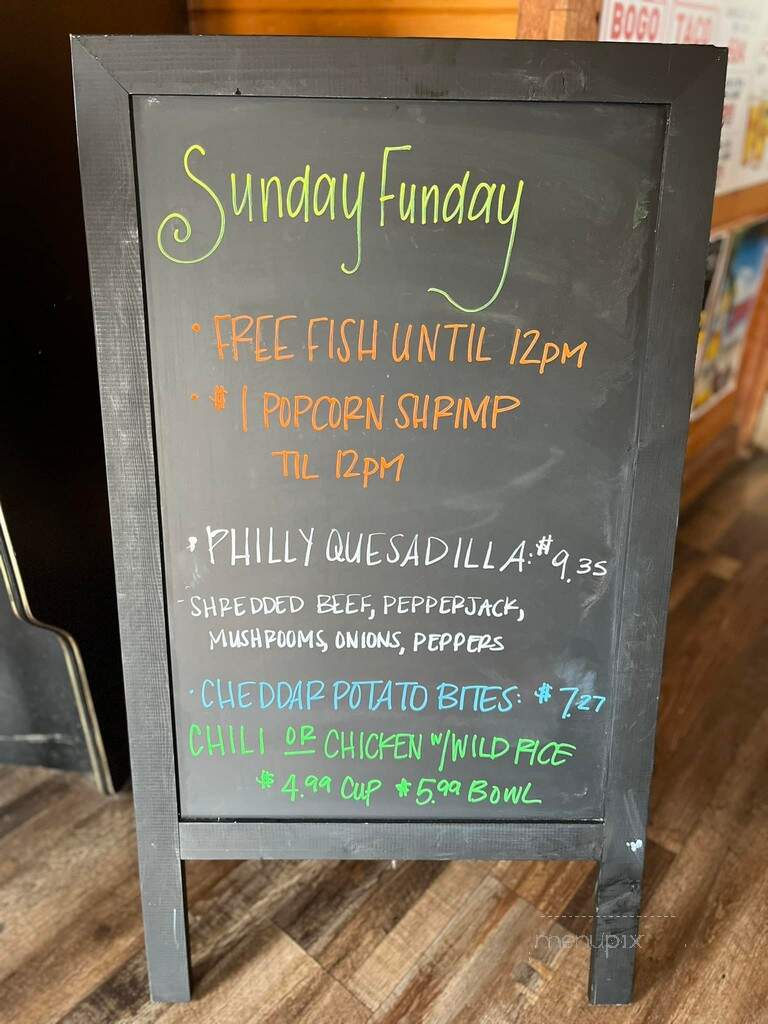 BOGO TACO
Sunday Funday
• FREE FISH UNTIL 12PM
• $1 POPCORN SHRIMP
TIL 12PM
• PHILLY QUESADILLA: $9.35
- SHREDDED BEEF, PEPPERJACK,
MUSHROOMS, ONIONS, PEPPERS
• CHEDDAR POTATO BITES: $7.27
CHILI OR CHICKEN W/WILD RICE
$4.99 CUP $5.99 BOWL
menupix